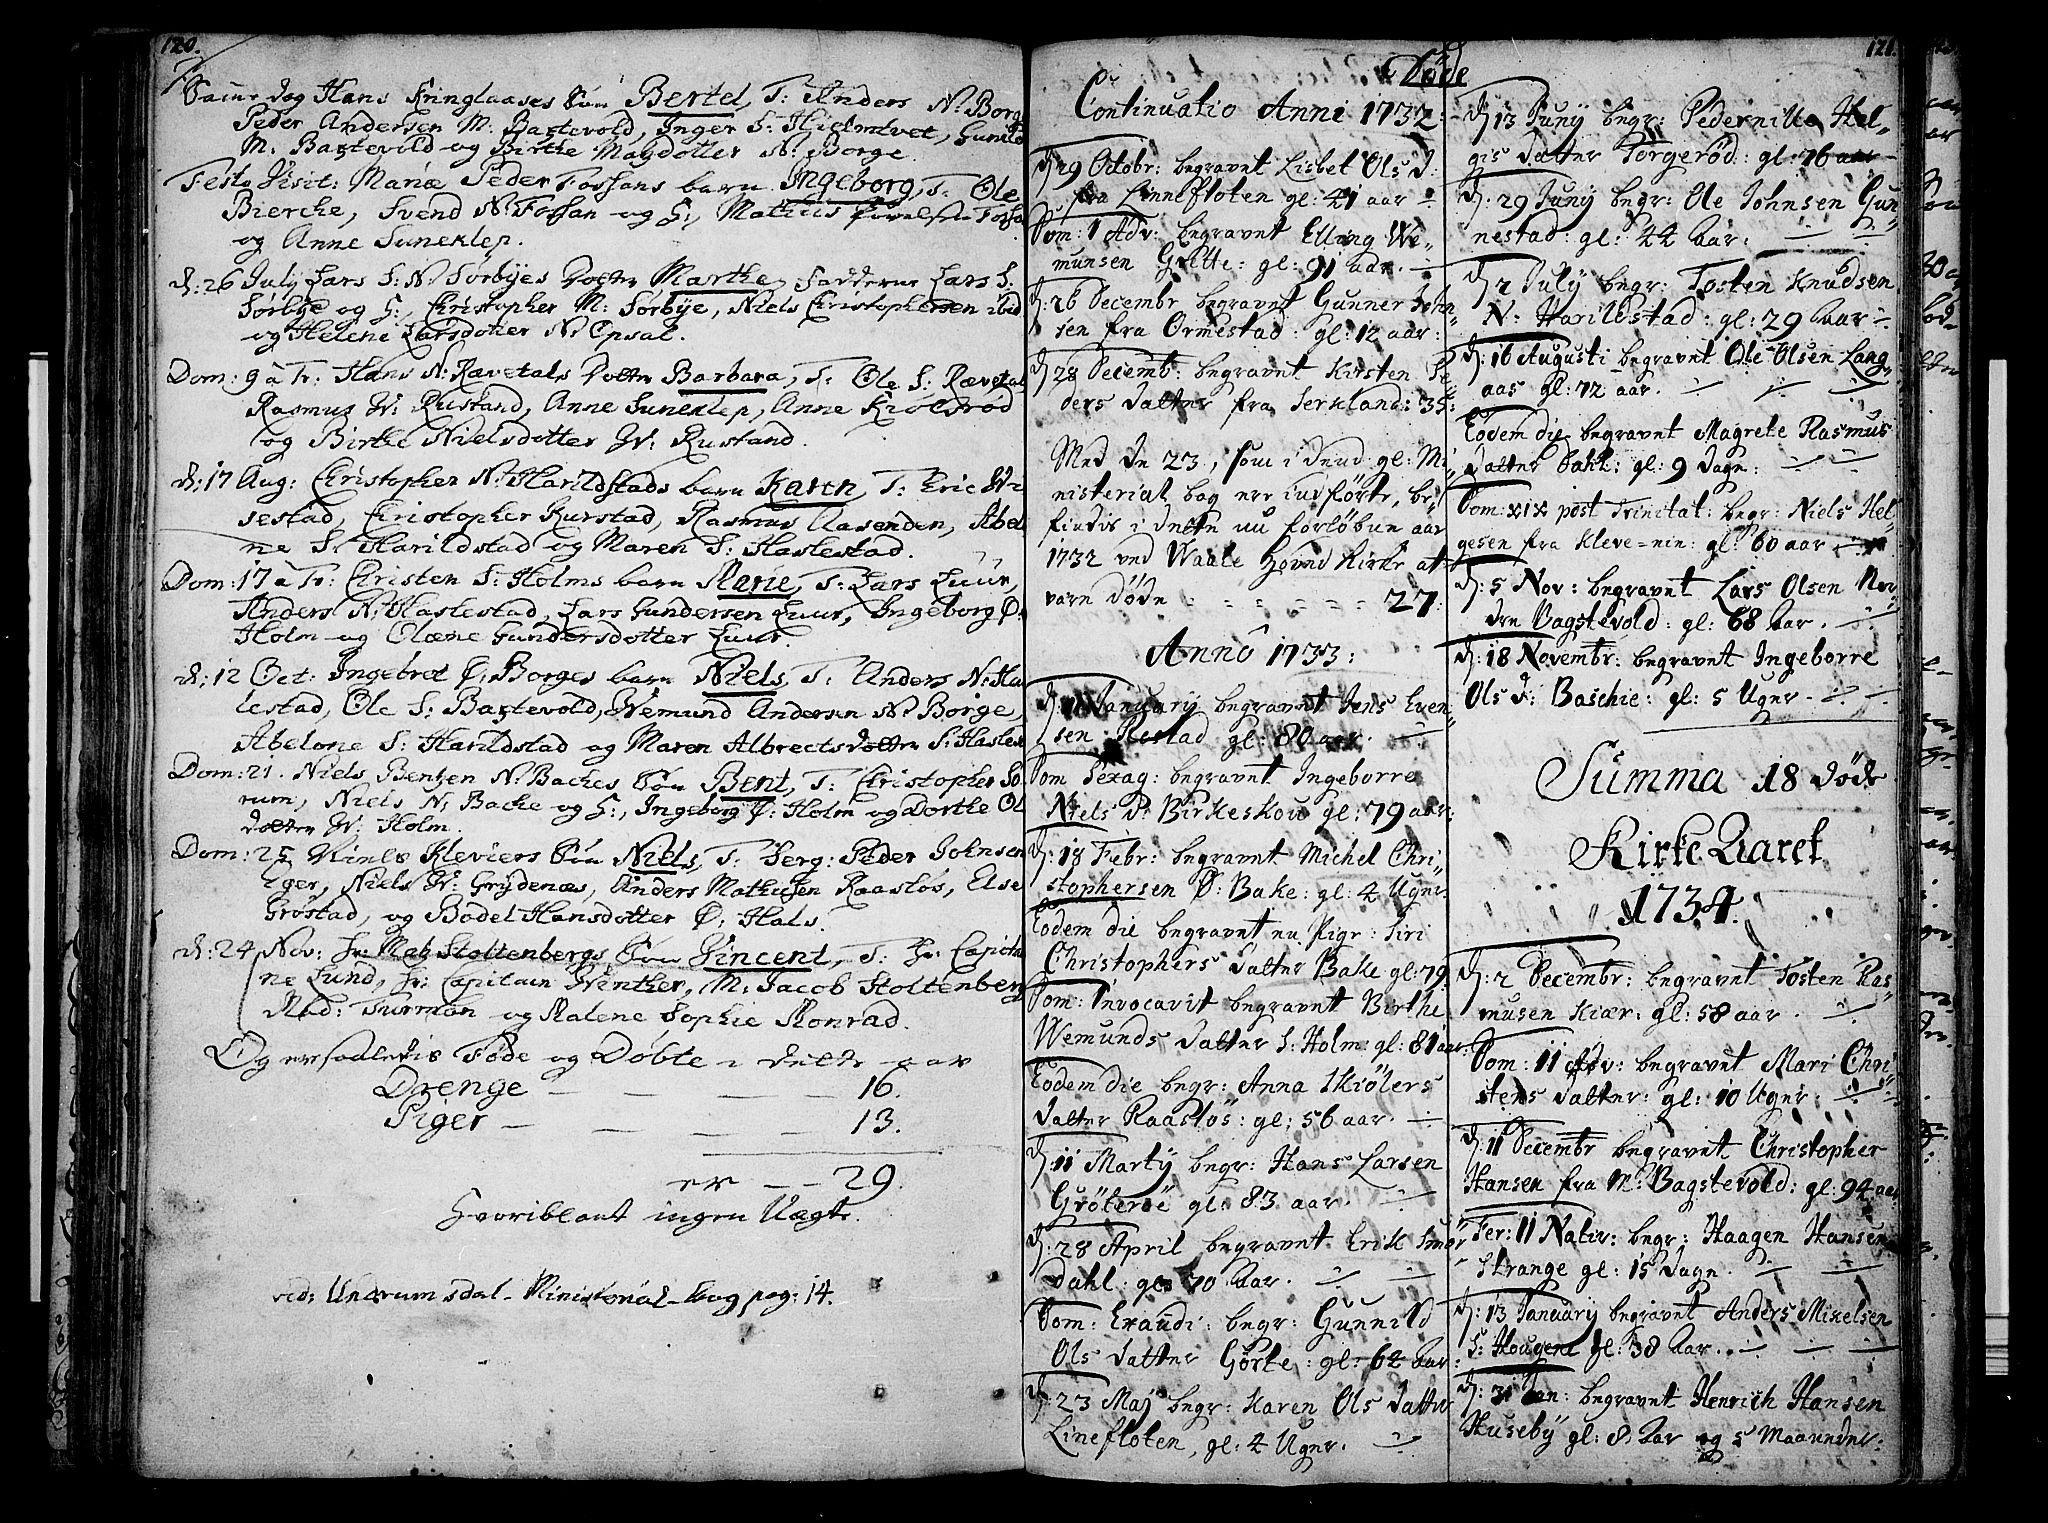 120.
Samme dag Hans Kringlaases Søn Bertel, T: Anders N: Borge
Peder Andersen M: Bastevold, Inger S: Hielmtvet, Gunild
M: Bastevold og Birthe Magdotter N: Borge.
Festo Visit: Mariæ Peder Fossans barn Ingeborg, T: Ole
Bierche, Svend N: Fossan og H:, Mathis Povelsen Fossan
og Anne Suneklep.
d: 26 July Lars S: N: Sørbyes Dotter Marthe, Fadderne Lars S:
Sørbye og H:, Christopher M: Sørbye, Niels Christophersen ibid
og Helene Larsdotter N: Opsal.
Dom: 9 à Tr: Hans N: Rævetals Dotter Barbara, T: Ole S: Rævetal
Rasmus W: Rustand, Anne Suneklep, Anne Kiølsrød
og Birthe Nielsdotter W: Rustand.
d: 17 Aug: Christopher N: Harildstads barn Karen, T: Eric Wi
sestad, Christopher Hurstad, Rasmus Aasenden, Abel
ne S: Harildstad og Maren S: Haslestad.
Dom: 17 à Tr: Christen S: Holms barn Marie, T: Lars Luur,
Anders N: Haslestad, Lars Gundersen Luur, Ingeborg Ø:
Holm og Olæne Gundersdotter Luur.
d: 12 Oct: Ingebret Ø: Borges barn Niels, T: Anders N: Ha
lestad, Ole S: Bastevold, Wemund Andersen N: Borge,
Abelone S: Harildstad og Maren Albrectsdotter S: Haslest
Dom: 21. Niels Bentzen N: Baches Søn Bent, T: Christopher So
rum, Niels N: Backe og H:, Ingeborg Ø: Holm og Dorthe Ol
dotter W: Holm.
Dom: 25 Niels Kleviers Søn Niels, T: Serg: Peder Johnsen
Eger, Niels W: Grydenæs, Anders Mathisen Raastøs, Else
Grøstad, og Bodel Hansdotter Ø: Hals.
d: 24 Nov: Hr: Mab Stoltenbergs Søn Vincent, T: Hr: Capitai
ne Lund, Hr: Capitain Winther, M: Jacob Stoltenberg
Mad: Furman og Malene Sophie Monrad.
Og er saaledis Føde og Døbte i dette aar
Drenge — — — — 16.
Piger — — — — 13.
er — — 29.
Hvoriblant ingen Uægte.
vid: Undrumsdal-Ministerial-bog pag: 14.
Døde
121.
Continuatio Anni 1732
d: 29 Octobr: begravet Lisbet Ols d:
fra Linnefloten gl: 41 aar
Dom: 1 Adv: begravet Elling We-
munsen Gritte: gl: 91 aar.
d: 26 Decembr begravet Gunner John-
sen fra Ormestad: gl: 12 aar:
d: 28 Decemb: begravet Kirsten Pe-
ders datter fra Serkland: 35:
Med de 23, som i dend gl: Mi-
nisterial bog ere indførte, be-
findis i dette nu forløbne aar
1732 ved Waale Hoved Kirke at
være døde 27:
Anno 1733:
d: 11 January begravet Jens Even-
sen Restad gl: 80 aar.
Dom Sexag: begravet Ingeborre
Niels D: Birkeskou gl: 79 aar:
d: 18 Febr: begravet Michel Chri-
stophersen Ø: Bake: gl: 4 Uger
Eodem die begravet en Pige: Siri
Christophers datter Bake gl: 79
Dom: Invocavit begravet Birthe
Wemunds datter S: Holm: gl: 81 aar:
Eodem die begr: Anna Skiølers
datter Raastøs: gl: 56 aar.
d: 11 Marty begr: Hans Larsen
Grøterøe gl: 83 aar.
d: 28 April begravet Erik Smør
dahl: gl: 70 Aar.
Dom: Exaudi: begr: Gunnild
Ols datter Gørte: gl: 62 Aar:
d: 23 Maj begr: Karen Ols datter
Linefloten, gl: 4 Uger.
d: 13 Juny begr: Pedernille Hel-
gis datter Torgerød: gl: 76 aar
d: 29 Juny begr: Ole Johnsen Gun-
nestad: gl: 44 Aar.
d: 2 July begr: Tosten Knudsen
N: Harildstad: gl: 29 Aar
d: 16 Augusti begravet Ole Olsen Lang-
aas gl: 72 aar.
Eodem die begravet Magrete Rasmus
datter Dahl: gl: 9 dage:
Dom: xix post Trinitat: begr: Niels Hel-
gesen fra Kleve=nin: gl: 60 aar
d: 5 Nov: begravet Lars Olsen Nor-
dre Bagstevold: gl: 68 Aar.
d: 18 Novembr: begravet Ingeborre
Ols d: Baschie: gl: 5 Uger.
Summa 18 døde
Kirke Aaret
1734.
d: 2 Decembr: begravet Tosten Ras-
musen Kiær: gl: 58 aar.
Dom: 11 Adv: begravet Mari Chri-
stens datter: gl: 10 Uger:
d: 11 Decembr begravet Christopher
Hansen fra M: Bagstevold: gl: 94 aar
Fer: 11 Nativ: begr: Haagen Hansen
Strange gl: 15 dage.
d: 13 January begravet Anders Mikelsen
S: Hougen gl: 38 Aar.
d: 31 Jan: begravet Henrich Hansen
Huseby gl: 8 Aar og 5 Maaneder: